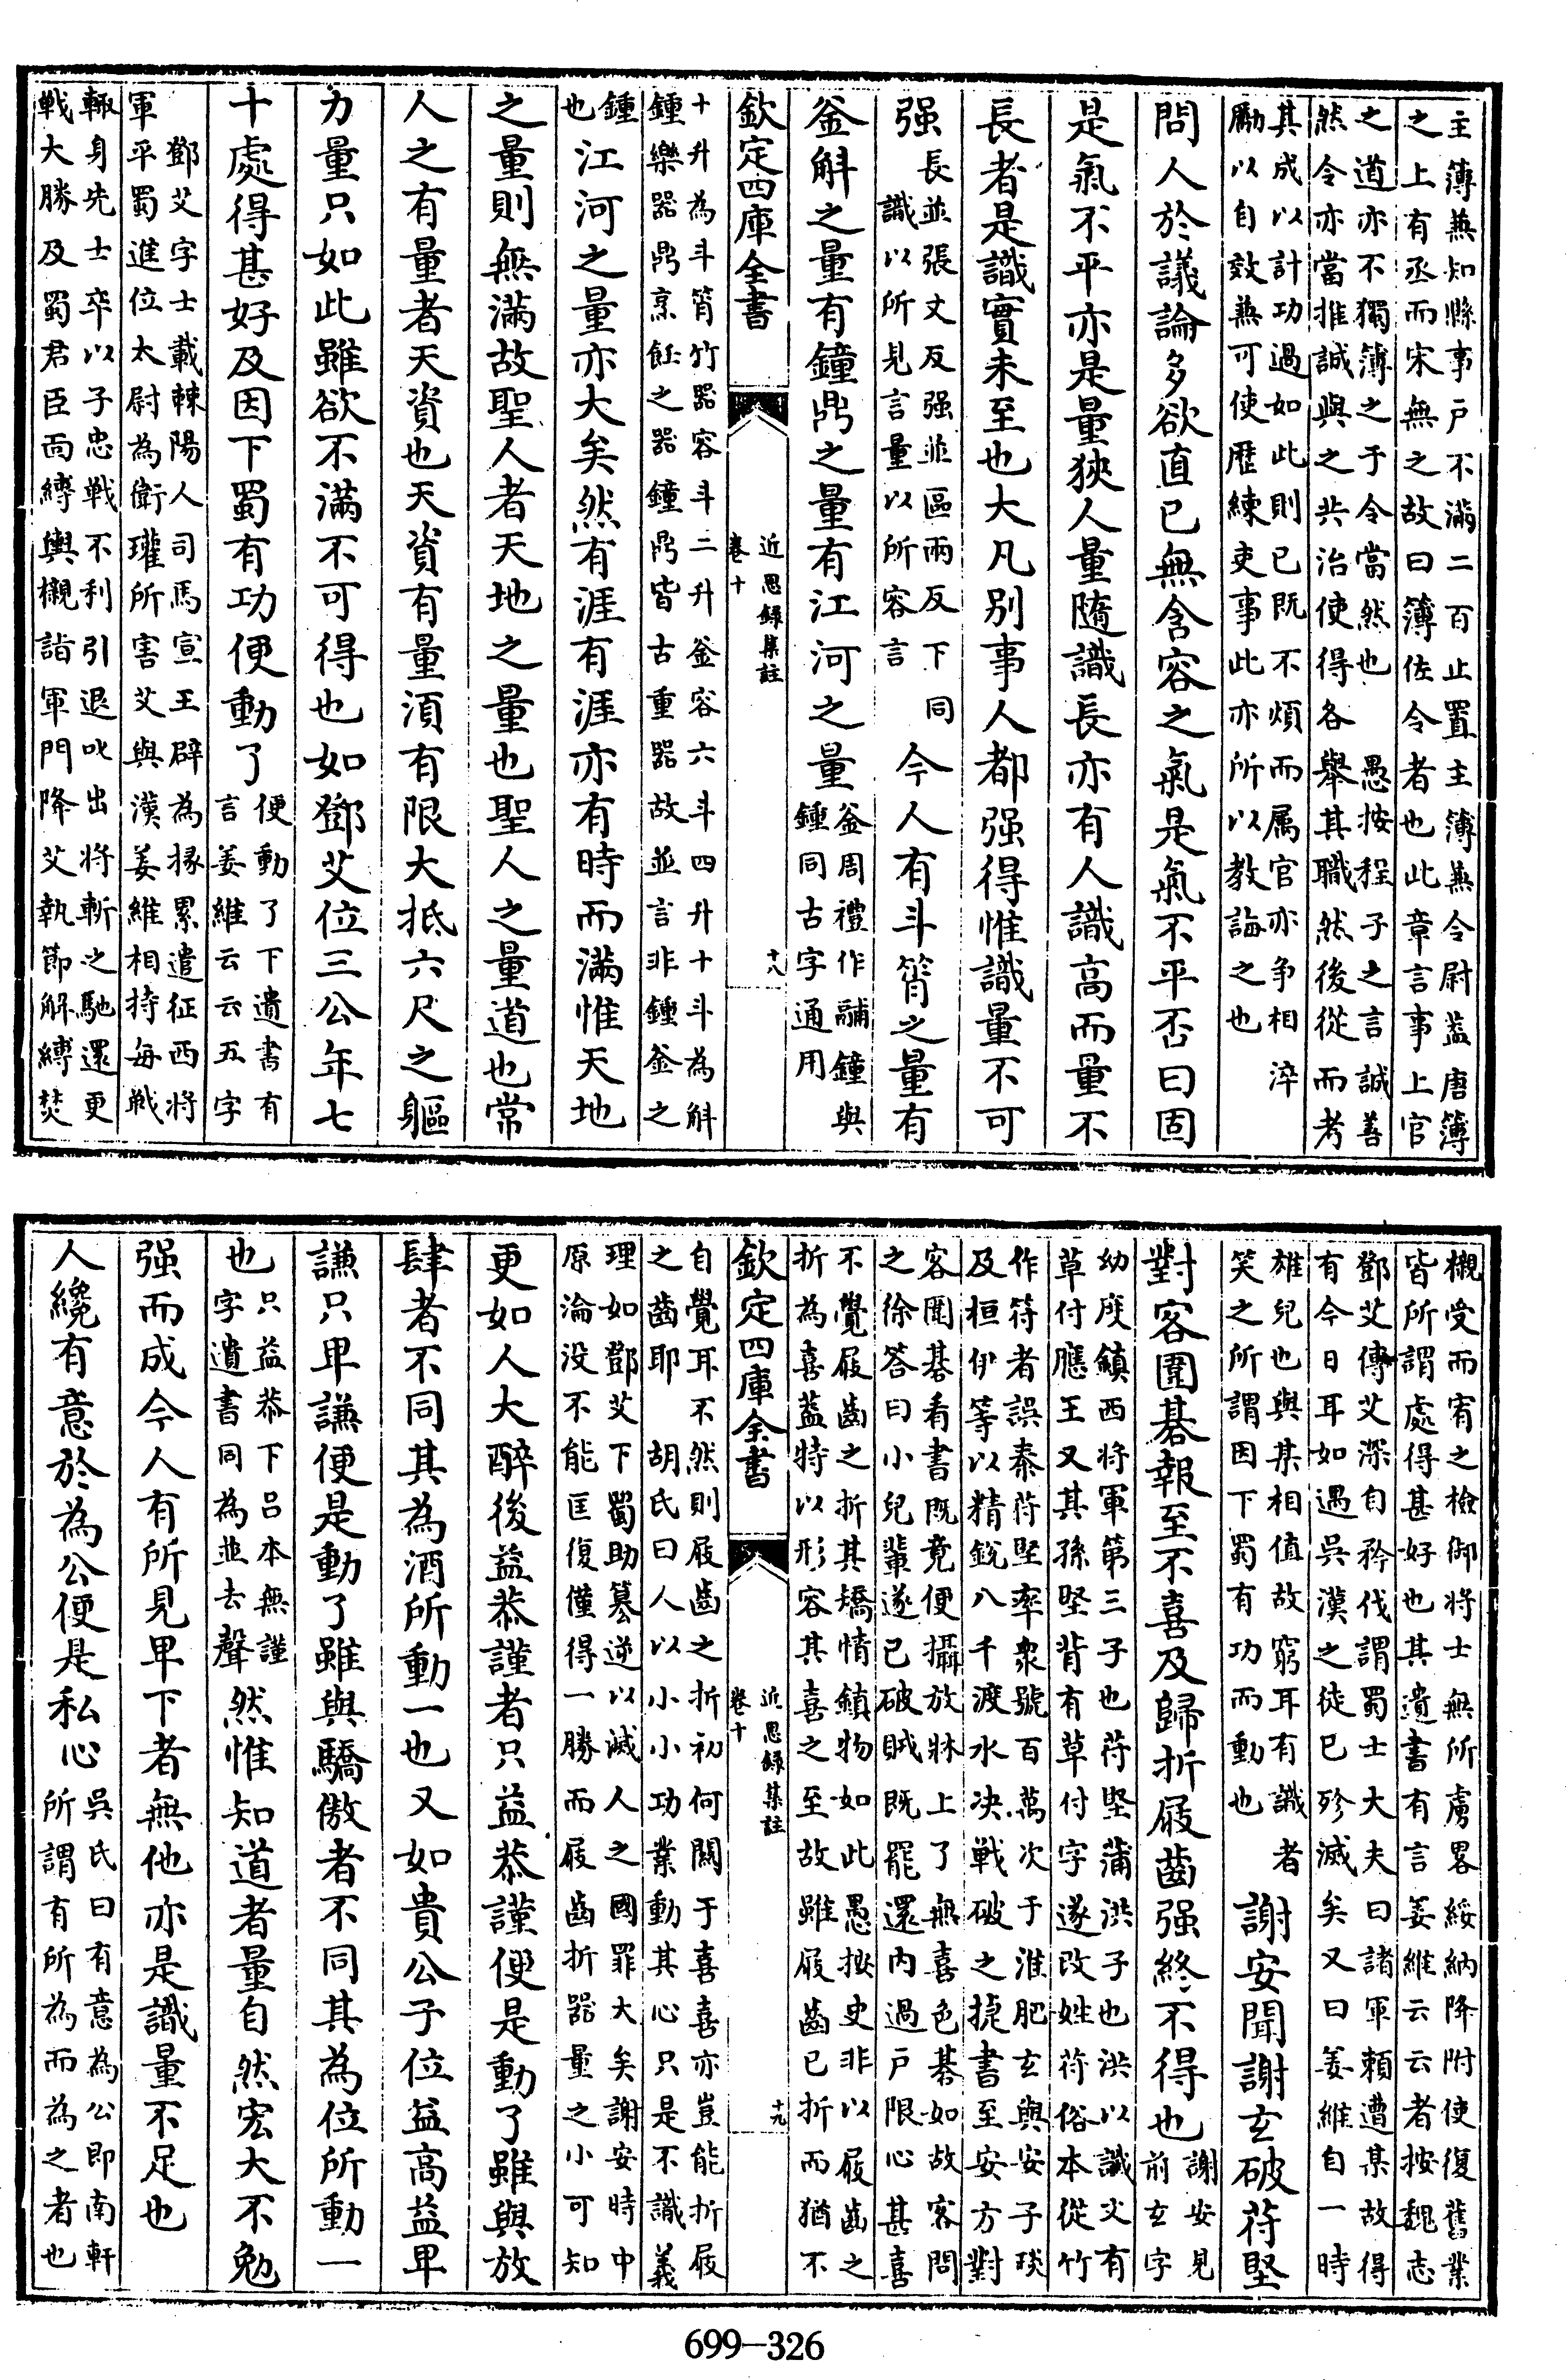 主簿無知縣事戶不滿二百止置主簿無令尉益唐簿
之上有丞而宋無之故曰簿佐令者也此章言事上官
之道亦不獨簿之于令當然也　愚按程子之言誠善
然令亦當推誠與之共治使得各舉其職然後從而考
其成以計功過如此則已既不煩而属官亦争相淬
勵以自效無可使歷練吏事此亦所以教誨之也
問人於議論多欲直已無含容之氣是氣不平否曰固
是氣不平亦是量狹人量隨識長亦有人識高而量不
長者是識實未至也大凡別事人都强得惟識量不可
强長並張丈反强並區兩反下同
識以所見言量以所容言今人有斗筲之量有
釜斛之量有鐘鼎之量有江河之量釜周禮作鬴鐘與
鍾同古字通用
欽定四庫全書　近思録集註　卷十　十八
十升為斗筲竹器容斗二升釜容六斗四升十斗為斛
鍾樂器鼎烹飪之器鐘鼎皆古重器故並言非鍾釜之
鍾
也江河之量亦大矣然有涯有涯亦有時而滿惟天地
之量則無滿故聖人者天地之量也聖人之量道也常
人之有量者天資也天資有量須有限大抵六尺之軀
力量只如此雖欲不滿不可得也如鄧艾位三公年七
十處得甚好及因下蜀有功便動了便動了下遺書有
言姜維云云五字
鄧艾字士載棘陽人司馬宣王辟為掾累遣征西將
軍平蜀進位太尉為衛瓘所害艾與漢姜維相持每戰
輙身先士卒以子忠戰不利引退叱出將斬之馳還更
戰大勝及蜀君臣面縛輿櫬詣軍門降艾執節解縛焚
櫬受而宥之檢御將士無所虜畧綏納降附使復舊業
皆所謂處得甚好也其遺書有言姜維云云者按魏志
鄧艾傳艾深自矜伐謂蜀士大夫曰諸軍賴遭某故得
有今日耳如遇吳漢之徒已殄滅矣又曰姜維自一時
雄兒也與某相值故窮耳有識者
笑之所謂因下蜀有功而動也謝安聞謝玄破苻堅
對客圍棊報至不喜及歸折屐齒强終不得也謝安見
前玄字
幼度鎮西將軍第三子也苻堅蒲洪子也洪以讖文有
草付應王又其孫堅背有草付字遂改姓苻俗本從竹
作符者誤秦苻堅率衆號百萬次于淮肥玄與安子琰
及桓伊等以精鋭八千渡水决戰破之捷書至安方對
客圍棊看書既竟便攝放牀上了無喜色棊如故客問
之徐答曰小兒輩遂已破賊既罷還内過戶限心甚喜
不覺屐齒之折其矯情鎮物如此愚按史非以屐齒之
折為喜葢特以形容其喜之至故雖屐齒已折而猶不
欽定四庫全書　近思録集註　卷十　十九
自覺耳不然則屐齒之折初何關于喜喜亦豈能折屐
之齒耶　胡氏曰人以小小功業動其心只是不識義
理如鄧艾下蜀助篡逆以滅人之國罪大矣謝安時中
原淪没不能匡復僅得一勝而屐齒折器量之小可知
更如人大醉後益恭謹者只益恭謹便是動了雖與放
肆者不同其為酒所動一也又如貴公子位益高益卑
謙只卑謙便是動了雖與驕傲者不同其為位所動一
也只益恭下吕本無謹
字遺書同為並去聲然惟知道者量自然宏大不勉
强而成今人有所見卑下者無他亦是識量不足也
人纔有意於為公便是私心吳氏曰有意為公即南軒
所謂有所為而為之者也
699—326